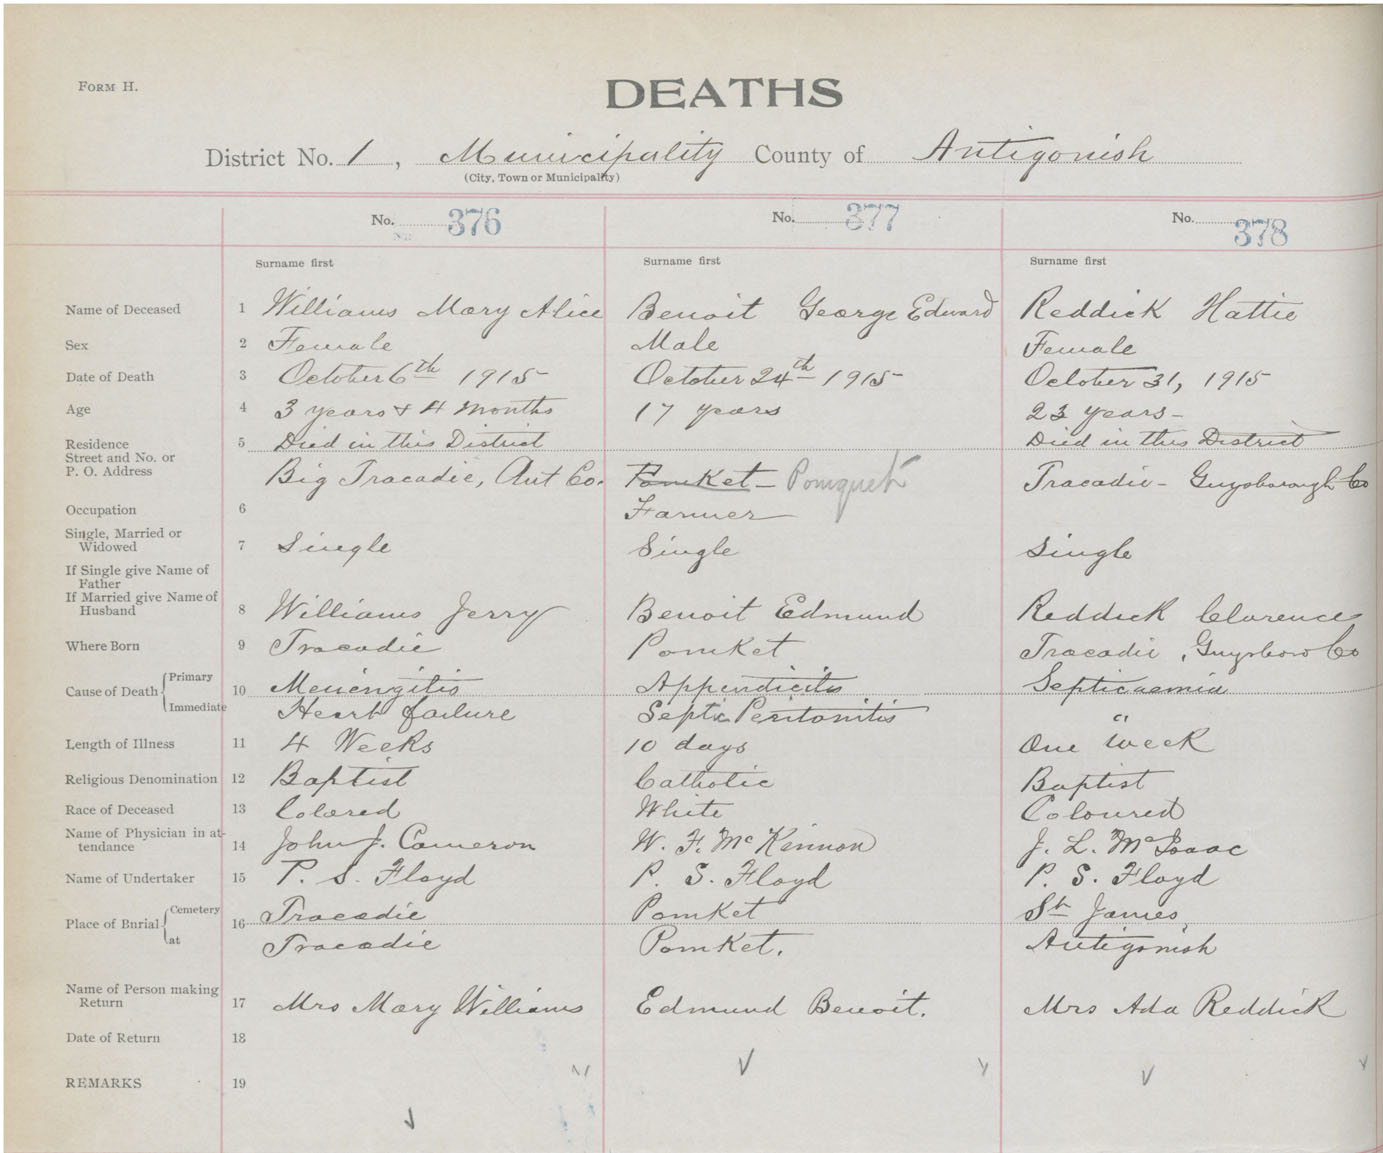 FORM H.
DEATHS
District No. 1, Municipality County of Antigonish
(City, Town or Municipality)
No. 376 No. 377 No. 378
Surname first Surname first Surname first
Name of Deceased 1 Williams Mary Alice Benoit George Edward Reddick Hattie
Sex 2 Female Male Female
Date of Death 3 October 6th 1915 October 24th 1915 October 31, 1915
Age 4 3 years & 4 months 17 years 23 years
Residence 5 Died in this District Died in this District
Street and No. or
P. O. Address Big Tracadie, Ant Co. Pomket Pomquet Tracadie - Guysborough Co
Occupation 6 Farmer
Single, Married or
Widowed 7 Single Single Single
If Single give Name of
Father
If Married give Name of
Husband 8 Williams Jerry Benoit Edmund Reddick Clarence
Where Born 9 Tracadie Pomket Tracadie, Guysboro Co
Cause of Death Primary 10 Menengitis Appendicitis Septicaemia
Immediate Heart failure Septic Peritonitis "
Length of Illness 11 4 Weeks 10 days One Week
Religious Denomination 12 Baptist Catholic Baptist
Race of Deceased 13 Colored White Coloured
Name of Physician in at-
tendance 14 John J. Cameron W. F. McKinnon J. L. McIsaac
Name of Undertaker 15 P. S. Floyd P. S. Floyd P. S. Floyd
Place of Burial Cemetery 16 Tracadie Pomket St James,
at Tracadie Pomket. Antigonish
Name of Person making
Return 17 Mrs Mary Williams Edmund Benoit. Mrs Ada Reddick
Date of Return 18
REMARKS 19